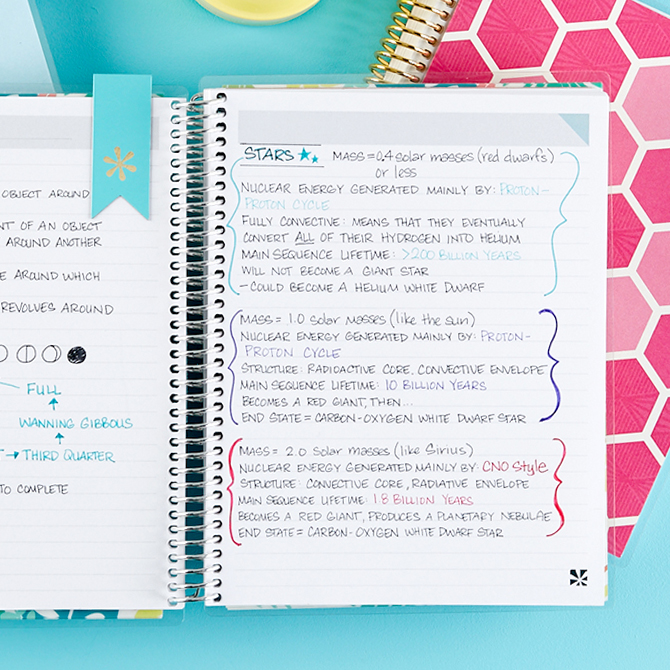 OBJECT AROUND
NT OF AN OBJECT
AROUND ANOTHER
E AROUND WHICH
REVOLVES AROUND
FULL
WANNING GIBBOUS
THIRD QUARTER
TO COMPLETE
STARS MASS = 0.4 solar masses (red dwarfs)
or less
NUCLEAR ENERGY GENERATED MAINLY BY: PROTON-
PROTON CYCLE
FULLY CONVECTIVE: MEANS THAT THEY EVENTUALLY
CONVERT ALL OF THEIR HYDROGEN INTO HELIUM
MAIN SEQUENCE LIFETIME: >200 BILLION YEARS
WILL NOT BECOME A GIANT STAR
- COULD BECOME A HELIUM WHITE DWARF
MASS = 1.0 solar masses (like the sun)
NUCLEAR ENERGY GENERATED MAINLY BY: PROTON-
PROTON CYCLE
STRUCTURE: RADIOACTIVE CORE, CONVECTIVE ENVELOPE
MAIN SEQUENCE LIFETIME: 10 BILLION YEARS
BECOMES A RED GIANT, THEN...
END STATE = CARBON-OXYGEN WHITE DWARF STAR
MASS = 2.0 solar masses (like Sirius)
NUCLEAR ENERGY GENERATED MAINLY BY: CNO Style
STRUCTURE: CONVECTIVE CORE, RADIATIVE ENVELOPE
MAIN SEQUENCE LIFETIME: 1.8 BILLION YEARS
BECOMES A RED GIANT, PRODUCES A PLANETARY NEBULAE
END STATE = CARBON-OXYGEN WHITE DWARF STAR